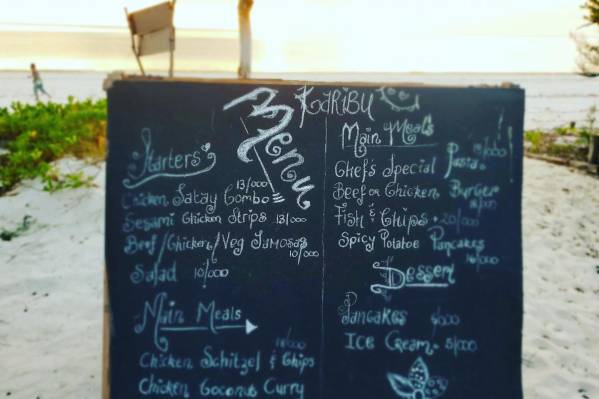 Karibu
Menu
Starters
13/000
Chicken Satay Combo
Sesami Chicken Strips 13/000
Beef/Chicken/Veg Samosas
10/000
Salad 10/000
Main Meals
Chicken Schitzel & Chips
Chicken Coconut Curry
Main Meals
Chef's Special Pasta
Beef or Chicken Burger
Fish & Chips 20/000
Spicy Potatoe Pancakes
Dessert
Pancakes
Ice Cream 5/000